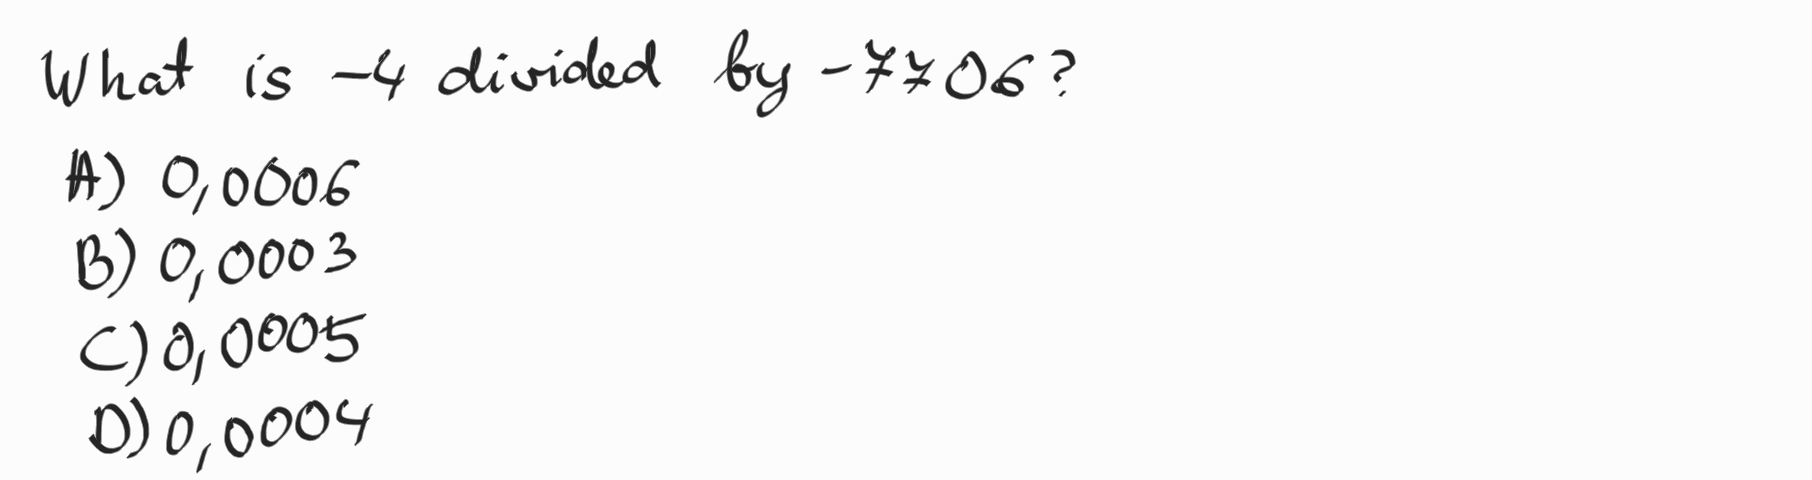 What is -4 divided by -7706?
A) 0,0006
B) 0,0003
C) 0,0005
D) 0,0004